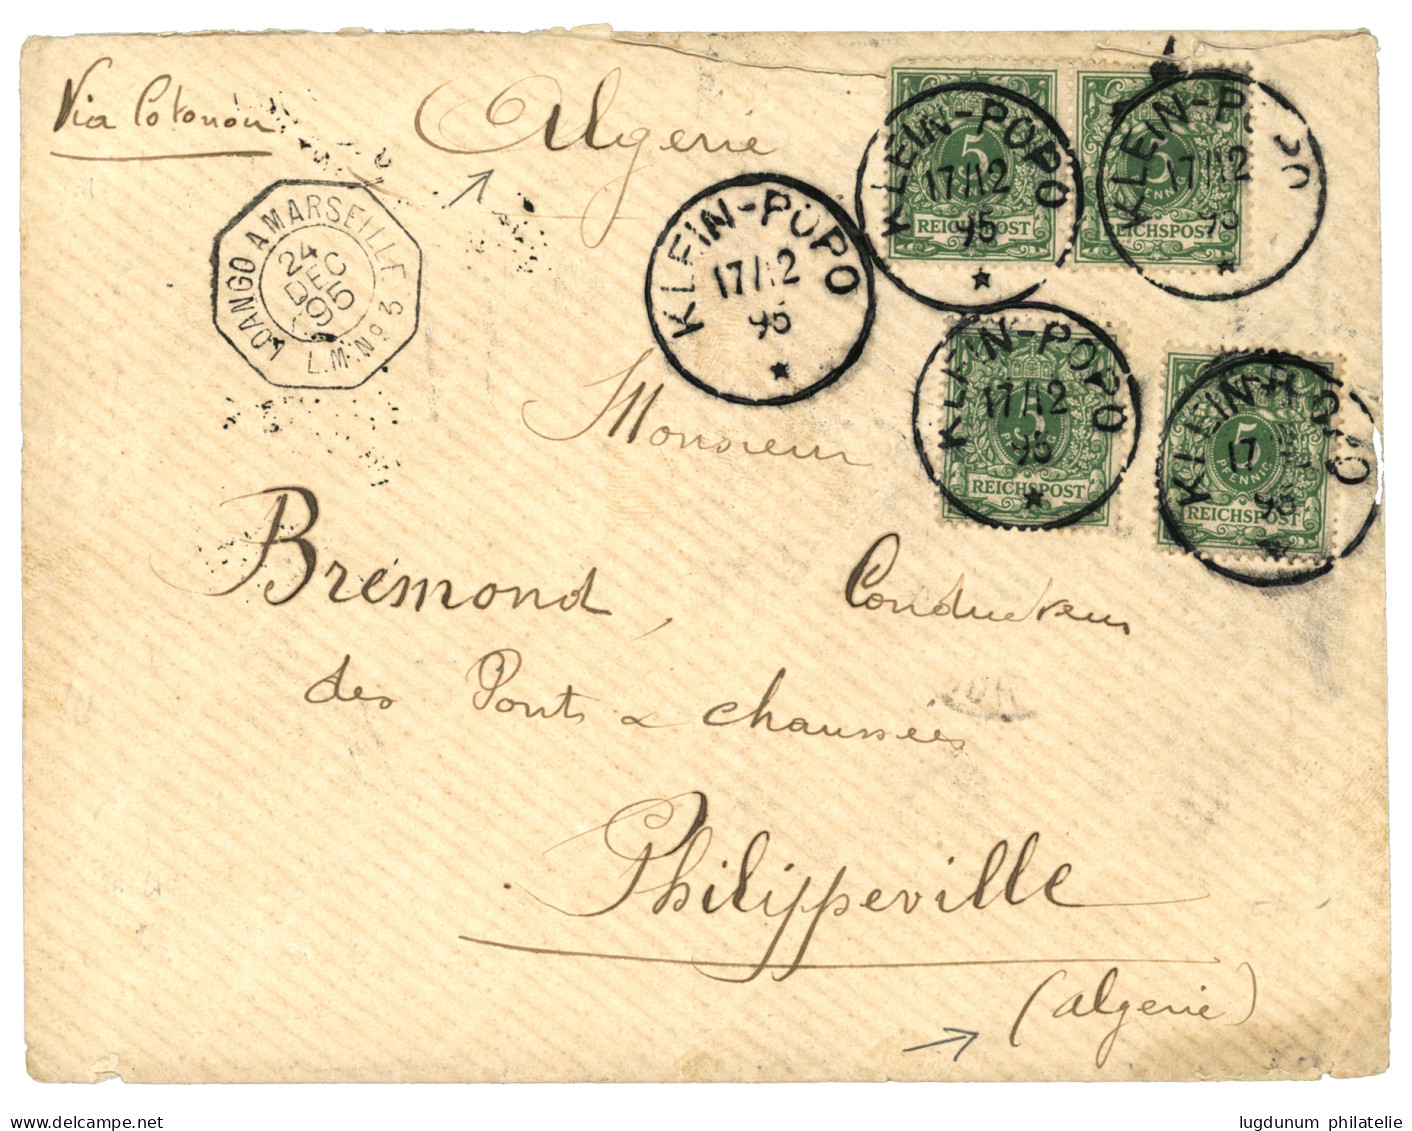 Via Cotonou
Algérie
LOANGO A MARSEILLE
24
DEC
95
L.M. No 3
KLEIN-POPO
17/12
95
KLEIN-POPO
17/12
95
5
REICHSPOST
KLEIN-POPO
17/12
95
5
PFENNIG
REICHSPOST
KLEIN-POPO
17/12
95
5
PFENNIG
REICHSPOST
KLEIN-POPO
17
95
5
PFENNIG
REICHSPOST
Monsieur
Brémond, Conducteur
des Ponts & chaussées
Philippeville
(algerie)
www.delcampe.net
lugdunum philatelie